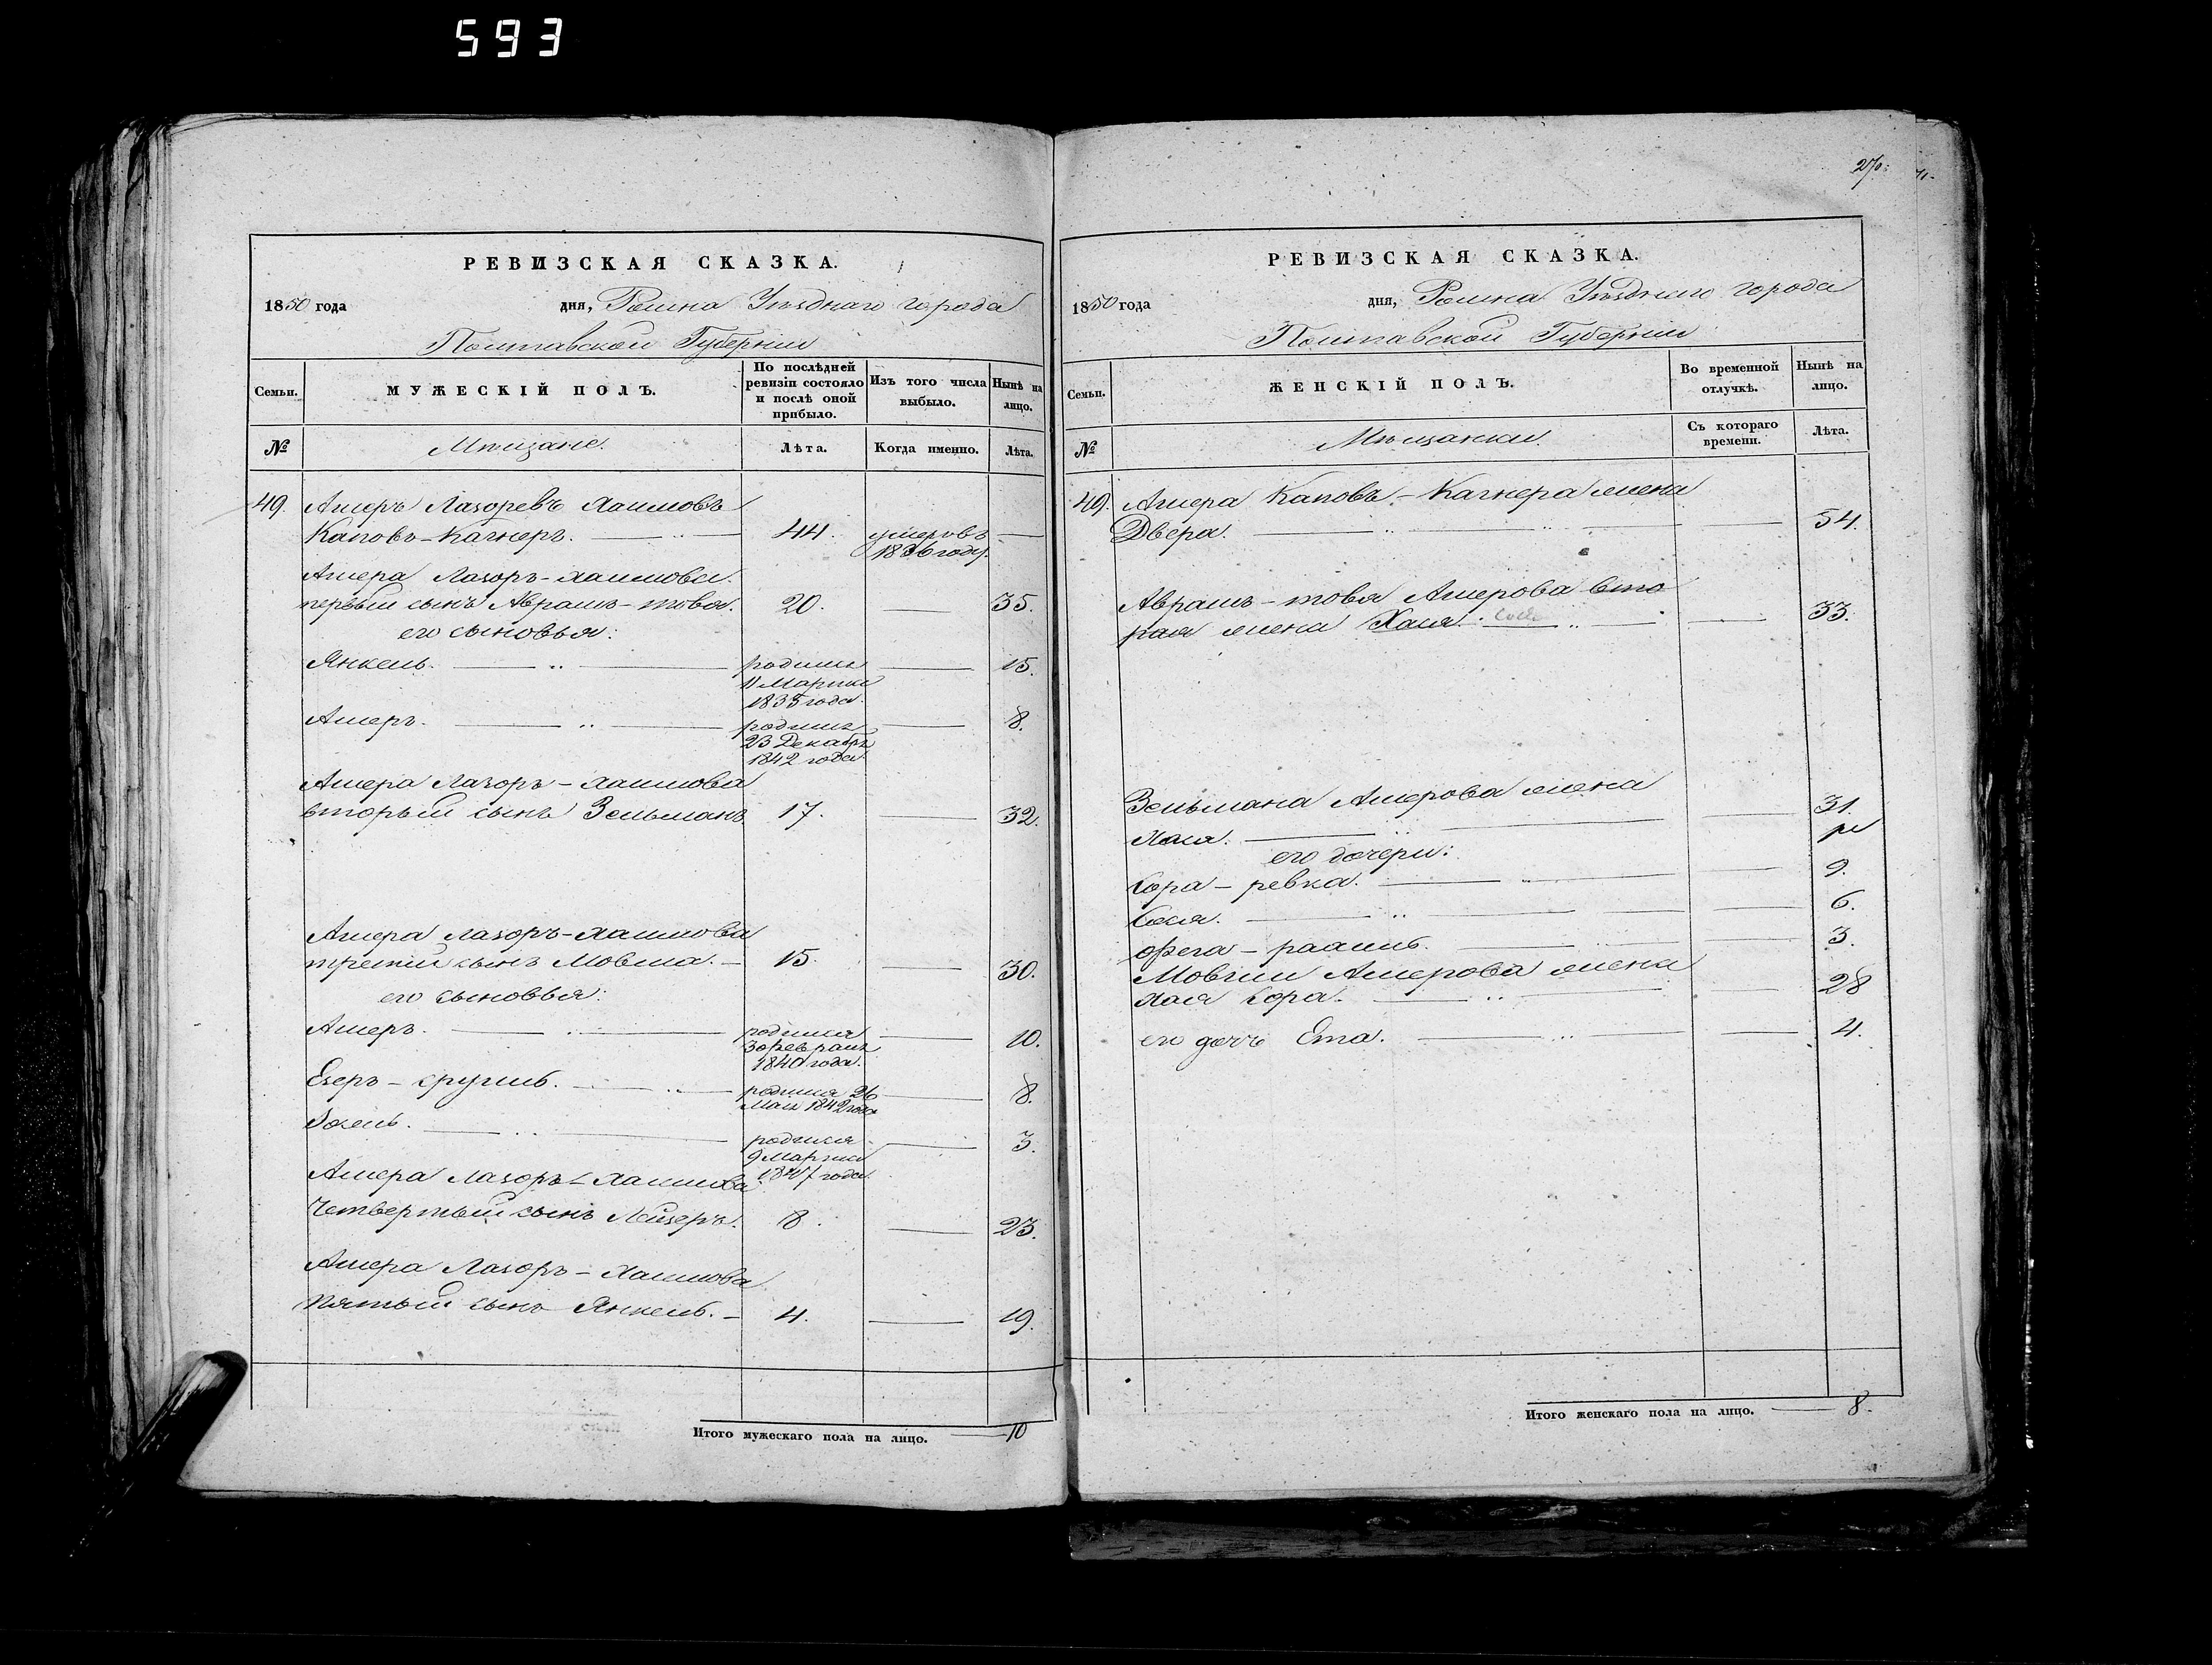 593
270
РЕВИЗСКАЯ СКАЗКА.
1850 года дня, Ромна Уѣзднаго города
Полтавской Губерніи
Семьи. МУЖЕСКІЙ ПОЛЪ. По послѣдней ревизіи состояло и послѣ оной прибыло. Изъ того числа выбыло. Нынѣ на лицо.
№ Мѣщане. Лѣта. Когда именно. Лѣта.
49. Ашеръ Лазоревъ Хаимовъ
Каповъ-Кагнеръ. 44. умеръ въ 1836 году.
Ашера Лазоръ-Хаимова
первый сынъ Аврамъ-това. 20. 35.
его сыновья:
Янкель. родился 11 Марта 1835 года. 15.
Ашеръ. родился 23 Декабря 1842 года 8.
Ашера Лазоръ-Хаимова
вторый сынъ Зельманъ 17. 32.
Ашера Лазоръ-Хаимова
третій сынъ Мовша. 15. 30.
его сыновья:
Ашеръ. родился 3 февраля 1840 года. 10.
Езеръ-срулиь. родился 26 Мая 1842 года 8.
родился 9 Марта 1847 года 3.
Ашера Лазоръ-Хаимова
Четвертый сынъ Лейзеръ. 8. 23.
Ашера Лазоръ-Хаимова
пятый сынъ Янкель. 4. 19.
Итого мужескаго пола на лицо. 10
РЕВИЗСКАЯ СКАЗКА.
1850 года дня, Ромна Уѣзднаго города
Полтавской Губерніи
Семьи. ЖЕНСКІЙ ПОЛЪ. Во временной отлучкѣ. Нынѣ на лицо.
№ Мѣщанки. Съ котораго времени. Лѣта.
49. Ашера Каповъ-Кагнера жена
Двера. 54.
Аврамъ-това Ашерова вто
рая жена Хася. 33.
Зельмана Ашерова жена 31.
Хася.
его дочери:
Сора-ревка. 9.
Сося. 6.
фрега-рахиль. 3.
Мовши Ашерова жена
Хая Сора. 28
его дочь Ета. 4.
Итого женскаго пола на лицо. 8.